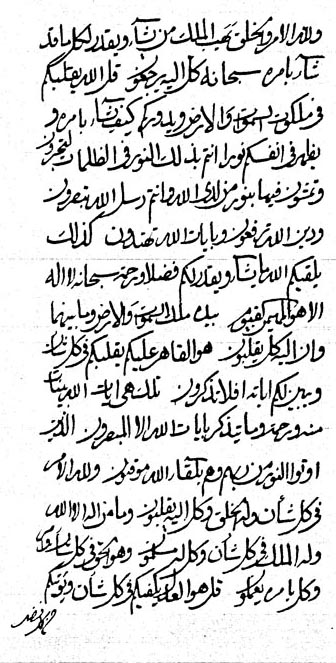 ولله الامر والخلق يهب الملك من يشآء ويقدر لكل ما قد
شآء بامره سبحانه كل اليه يرجعون قل الله يقلبكم
في ملكوت السموات والارض ويدبركم كيف يشآء بامره و
يظهر في انفسكم نورا انتم بذلك النور في الظلمات
وتمشون فيها بنور من لدى الله وانتم رسل الله تبصرون
ودين الله ترفعون وبايات الله تهتدون كذلك
يلقيكم الله ما يشآء ويقدر لكم فضلا ورحمة سبحانه لا اله
الا هو المهيمن القيوم بيده ملك السموات والارض وما بينهما
وان اليه كل يقلبون هو القاهر عليكم يقلبكم في كل شأن
ويبين لكم اياته افلا تذكرون تلك هي ايات الله بينات
منه ورحمة وما يتذكر بايات الله الا المبصرون الذين
اوتوا النور من ربهم وهم بلقآء الله موقنون ولله الامر
في كل شأن وله الخلق وكل اليه يقلبون وما من اله الا الله
وله الملك في كل شأن وكل له وهو الحق في كل شأن
وكل بامره يعملون قل هو العدل يكفيكم في كل شأن